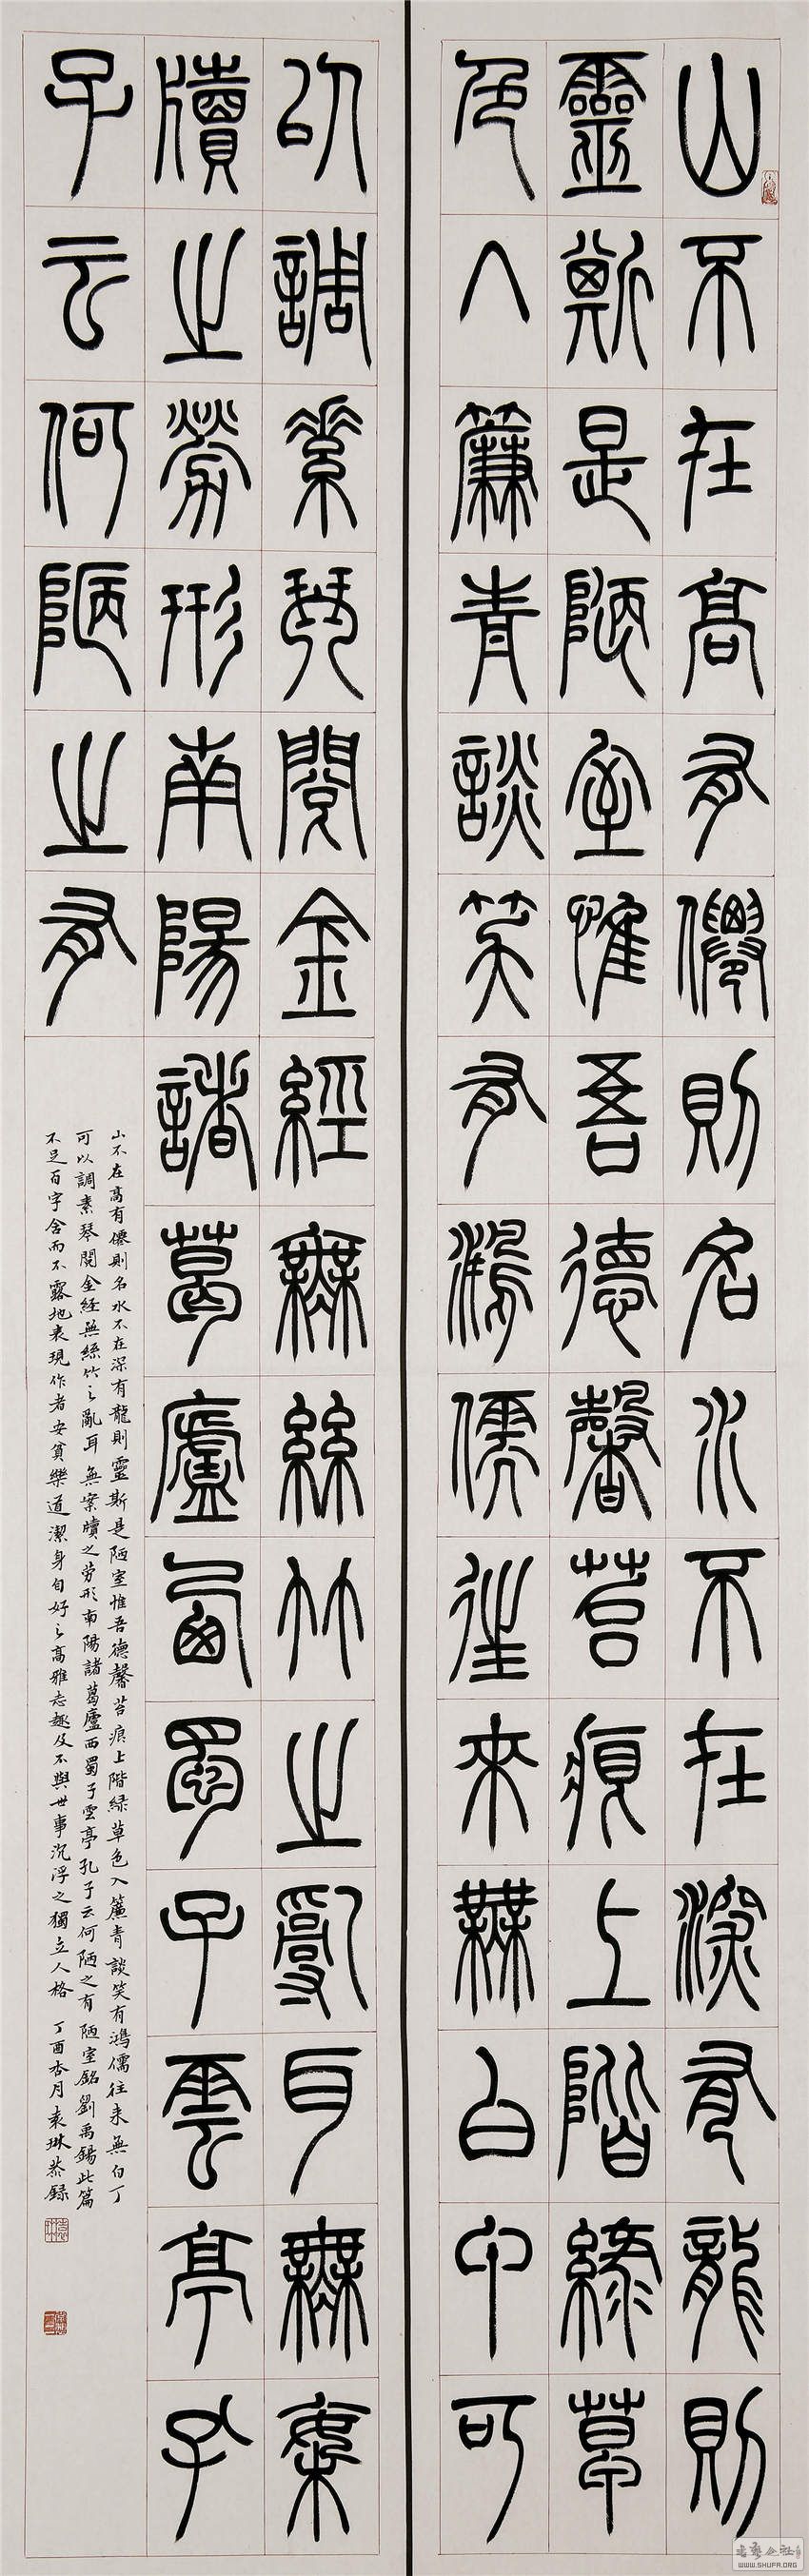 山不在高有僊則名水不在深有龍則
靈斯是陋室惟吾德馨苔痕上階綠草
色入簾青談笑有鴻儒往來無白丁可
以調素琴閱金經無絲竹之亂耳無案
牘之勞形南陽諸葛廬西蜀子雲亭孔
子云何陋之有
山不在高有僊則名水不在深有龍則靈斯是陋室惟吾德馨苔痕上階綠草色入簾青談笑有鴻儒往来無白丁
可以調素琴閱金経無絲竹之亂耳無案牘之勞形南陽諸葛廬西蜀子雲亭孔子云何陋之有陋室銘劉禹錫此篇
不足百字含而不露地表現作者安貧樂道潔身自好之高雅志趣及不與世事沉浮之獨立人格 丁酉杏月袁琳恭録
WWW.SHUFA.ORG